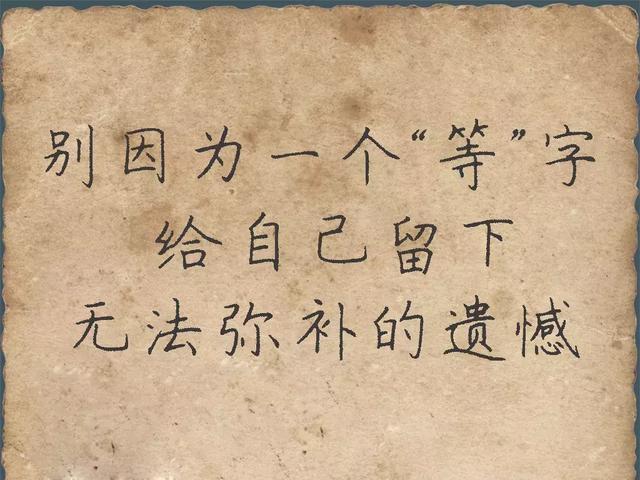 别因为一个“等”字
给自己留下
无法弥补的遗憾